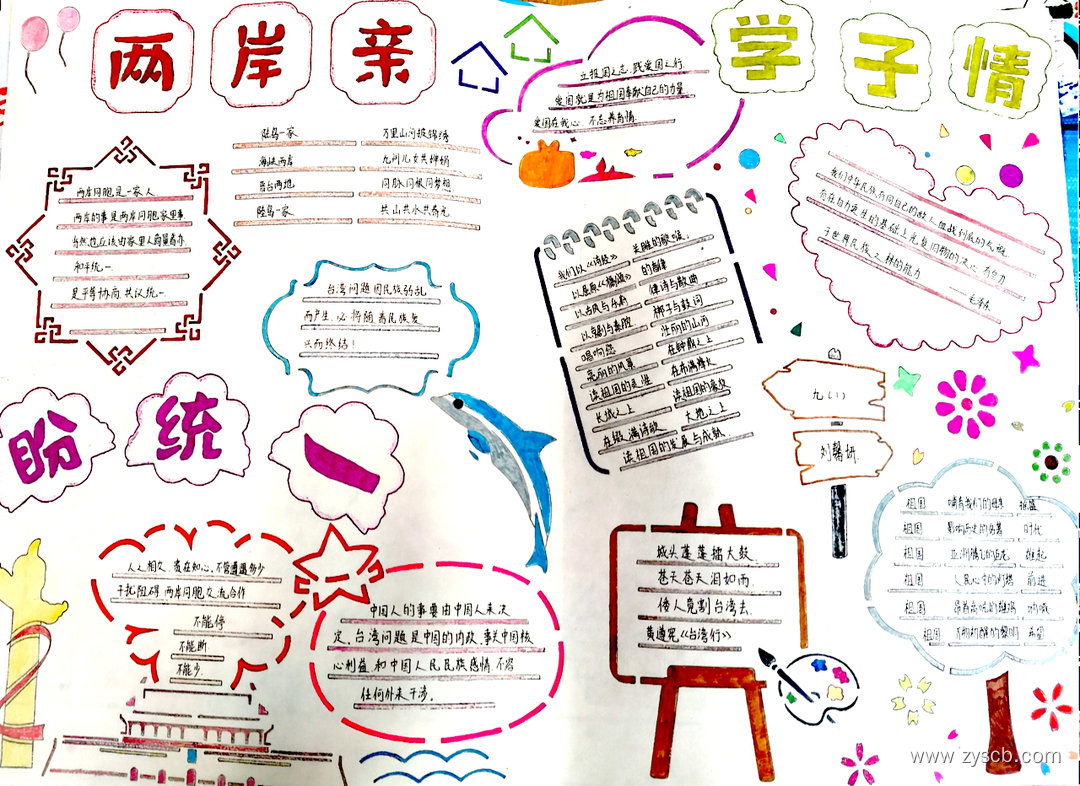 两岸亲
学子情
立报国之志,践爱国之行
爱国就是为祖国奉献自己的力量
爱国在我心,不忘养育情
陆岛一家 万里山河披锦绣
海峡两岸 九州儿女共婵娟
晋台两地 同脉同根同梦想
陆岛一家 共山共水共春光
两岸同胞是一家人
两岸的事是两岸同胞家里事
当然也应该由家里人商量着办
和平统一
是平等协商,共议统一
台湾问题因民族弱乱
而产生,必将随着民族复
兴而终结!
我们以《诗经》 关雎的歌喉
以屈原《橘颂》 的韵律
以古风与乐府 律诗与散曲
梆子与鼓词
唱响您 壮丽的山河
亮丽的风景 在钟鼎之上
读祖国的
长城之上 读祖国的
在缀满诗歌 大地之上
读祖国的发展与成熟
我们中华民族有同自己的敌人血战到底的气概
有在自力更生的基础上光复旧物的决心,有自立
于世界民族之林的能力
——毛泽东
盼统一
九(1)
刘馨妍
人之相交,贵在知心,不管遭遇多少
干扰阻碍,两岸同胞交流合作
不能停
不能断
不能少
中国人的事要由中国人来决
定,台湾问题是中国的内政,事关中国核
心利益和中国人民民族感情,不容
任何外来干涉。
城头蓬蓬擂大鼓
苍天苍天泪如雨
倭人竟割台湾去
黄遵宪《台湾行》
祖国 哺育我们的母亲
祖国 时代
祖国 亚洲腾飞的巨龙 雄起
祖国 人民心中的灯塔 前进
祖国
祖国 希望
www.zyscb.com